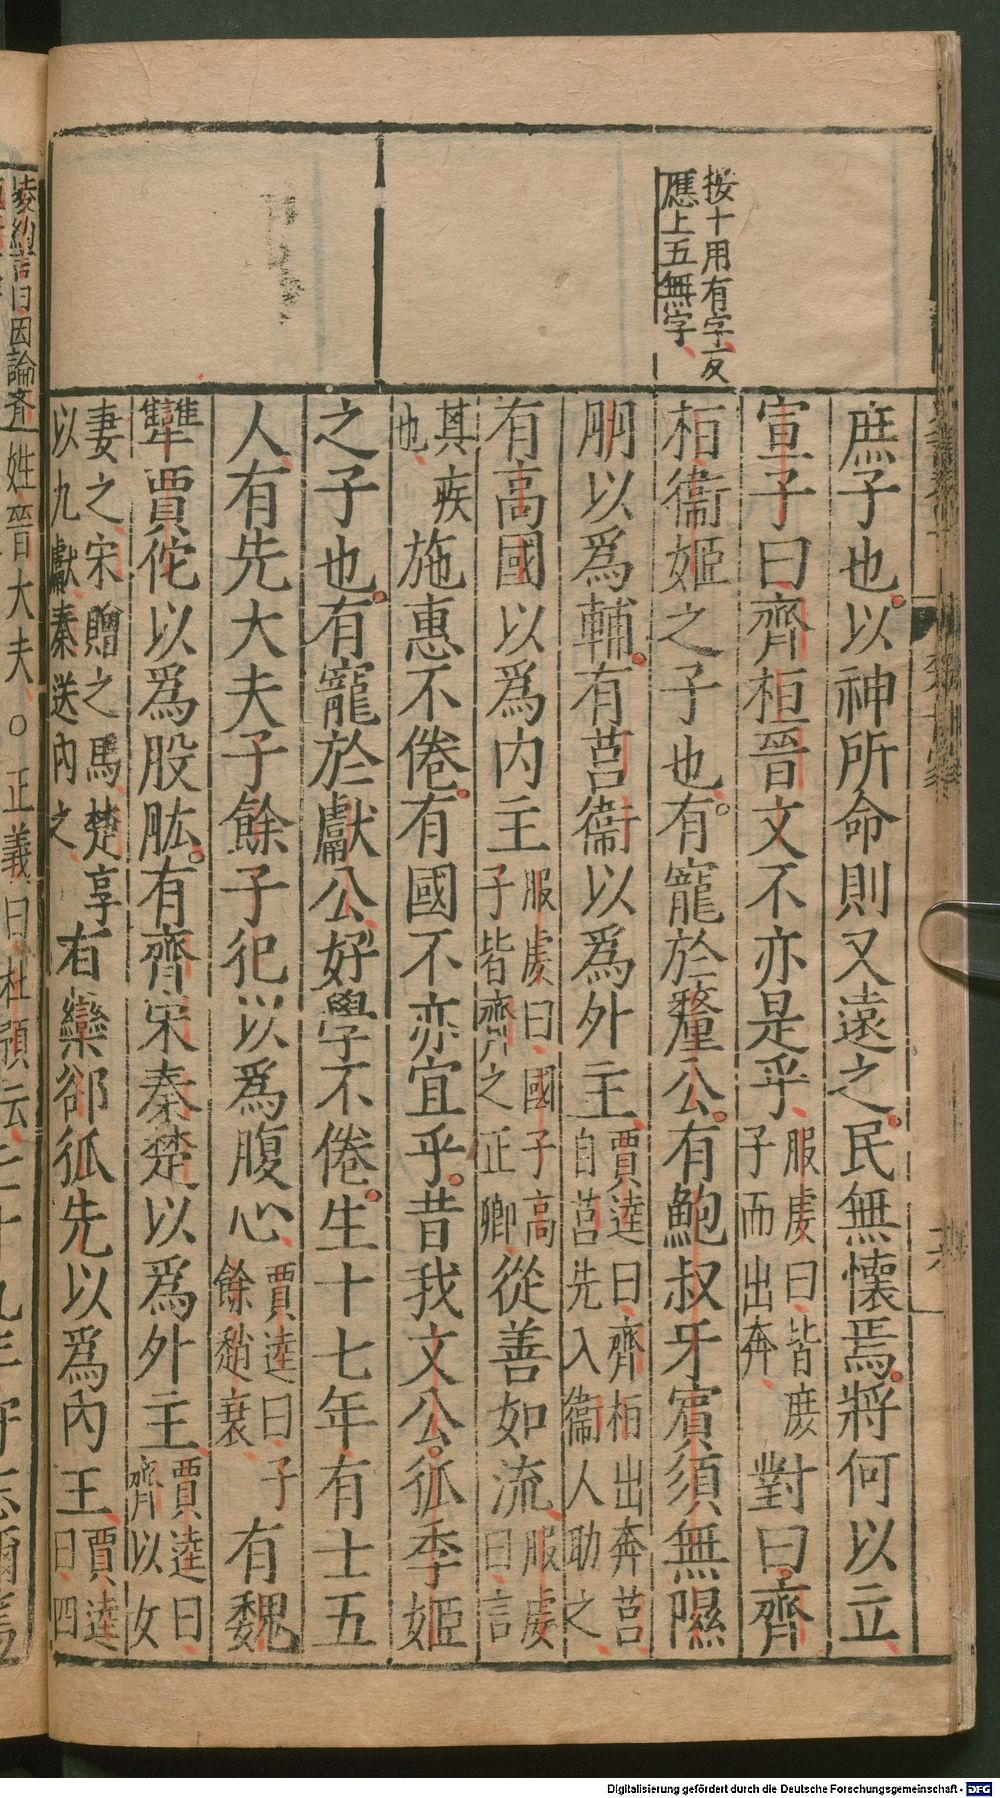 按十用有字反
應上五無字
庶子也以神所命則又遠之民無懷焉將何以立
宣子曰齊桓晉文不亦是乎服虔曰皆庶子而出奔對曰齊
桓衞姬之子也有寵於釐公有鮑叔牙賓須無隰
朋以爲輔有莒衞以爲外主賈逵曰齊桓出奔莒自莒先入衞人助之
有高國以爲內主服虔曰國子高子皆齊之正卿從善如流服虔曰言
其疾也施惠不倦有國不亦宜乎昔我文公狐季姬
之子也有寵於獻公好學不倦生十七年有士五
人有先大夫子餘子犯以爲腹心賈逵曰子餘趙衰有魏
犨賈佗以爲股肱有齊宋秦楚以爲外主賈逵曰齊以女
妻之宋贈之馬楚享以九獻秦送內之有欒郤狐先以爲內主賈逵曰四
凌約言曰因論
姓晉大夫○正義曰杜預云二十九年守志彌篤
Digitalisierung gefördert durch die Deutsche Forschungsgemeinschaft - DFG